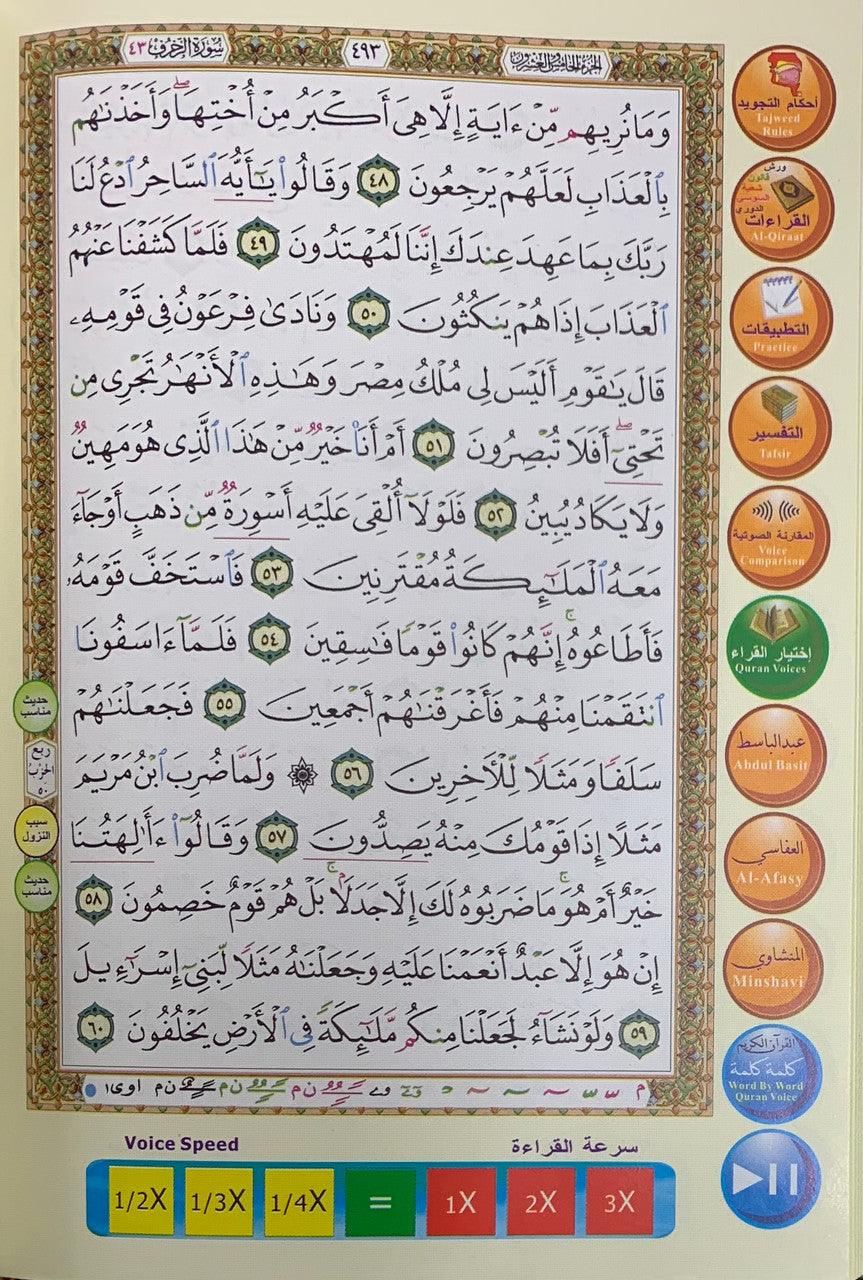 سُورَةُ الزُّخْرُفِ ٤٣
٤٩٣
الجزء الخامس والعشرون
وَمَا نُرِيهِم مِّنْ ءَايَةٍ إِلَّا هِىَ أَكْبَرُ مِنْ أُخْتِهَا ۖ وَأَخَذْنَٰهُم
بِٱلْعَذَابِ لَعَلَّهُمْ يَرْجِعُونَ ٤٨ وَقَالُوا۟ يَٰٓأَيُّهَ ٱلسَّاحِرُ ٱدْعُ لَنَا
رَبَّكَ بِمَا عَهِدَ عِندَكَ إِنَّنَا لَمُهْتَدُونَ ٤٩ فَلَمَّا كَشَفْنَا عَنْهُمُ
ٱلْعَذَابَ إِذَا هُمْ يَنكُثُونَ ٥٠ وَنَادَىٰ فِرْعَوْنُ فِى قَوْمِهِۦ
قَالَ يَٰقَوْمِ أَلَيْسَ لِى مُلْكُ مِصْرَ وَهَٰذِهِ ٱلْأَنْهَٰرُ تَجْرِى مِن
تَحْتِىٓ ۖ أَفَلَا تُبْصِرُونَ ٥١ أَمْ أَنَا۠ خَيْرٌ مِّنْ هَٰذَا ٱلَّذِى هُوَ مَهِينٌ
وَلَا يَكَادُ يُبِينُ ٥٢ فَلَوْلَآ أُلْقِىَ عَلَيْهِ أَسْوِرَةٌ مِّن ذَهَبٍ أَوْ جَآءَ
مَعَهُ ٱلْمَلَٰٓئِكَةُ مُقْتَرِنِينَ ٥٣ فَٱسْتَخَفَّ قَوْمَهُۥ
فَأَطَاعُوهُ ۚ إِنَّهُمْ كَانُوا۟ قَوْمًا فَٰسِقِينَ ٥٤ فَلَمَّآ ءَاسَفُونَا
ٱنتَقَمْنَا مِنْهُمْ فَأَغْرَقْنَٰهُمْ أَجْمَعِينَ ٥٥ فَجَعَلْنَٰهُمْ
سَلَفًا وَمَثَلًا لِّلْءَاخِرِينَ ٥٦ ۞ وَلَمَّا ضُرِبَ ٱبْنُ مَرْيَمَ
مَثَلًا إِذَا قَوْمُكَ مِنْهُ يَصِدُّونَ ٥٧ وَقَالُوٓا۟ ءَأَٰلِهَتُنَا
خَيْرٌ أَمْ هُوَ ۚ مَا ضَرَبُوهُ لَكَ إِلَّا جَدَلًۢا ۚ بَلْ هُمْ قَوْمٌ خَصِمُونَ ٥٨
إِنْ هُوَ إِلَّا عَبْدٌ أَنْعَمْنَا عَلَيْهِ وَجَعَلْنَٰهُ مَثَلًا لِّبَنِىٓ إِسْرَٰٓءِيلَ
٥٩ وَلَوْ نَشَآءُ لَجَعَلْنَا مِنكُم مَّلَٰٓئِكَةً فِى ٱلْأَرْضِ يَخْلُفُونَ ٦٠
حديث
مناسب
ربع
الحزب
٥٠
سبب
النزول
حديث
مناسب
أحكام التجويد
Tajweed
Rules
ورش
قالون
شعبة
السوسي
الدوري
القراءات
Al-Qiraat
التطبيقات
Practice
التفسير
Tafsir
المقارنة الصوتية
Voice
Comparison
إختيار القراء
Quran Voices
عبدالباسط
Abdul Basit
العفاسي
Al-Afasy
المنشاوي
Minshavi
القرآن الكريم
كلمة كلمة
Word By Word
Quran Voice
Voice Speed
سرعة القراءة
1/2X 1/3X 1/4X = 1X 2X 3X